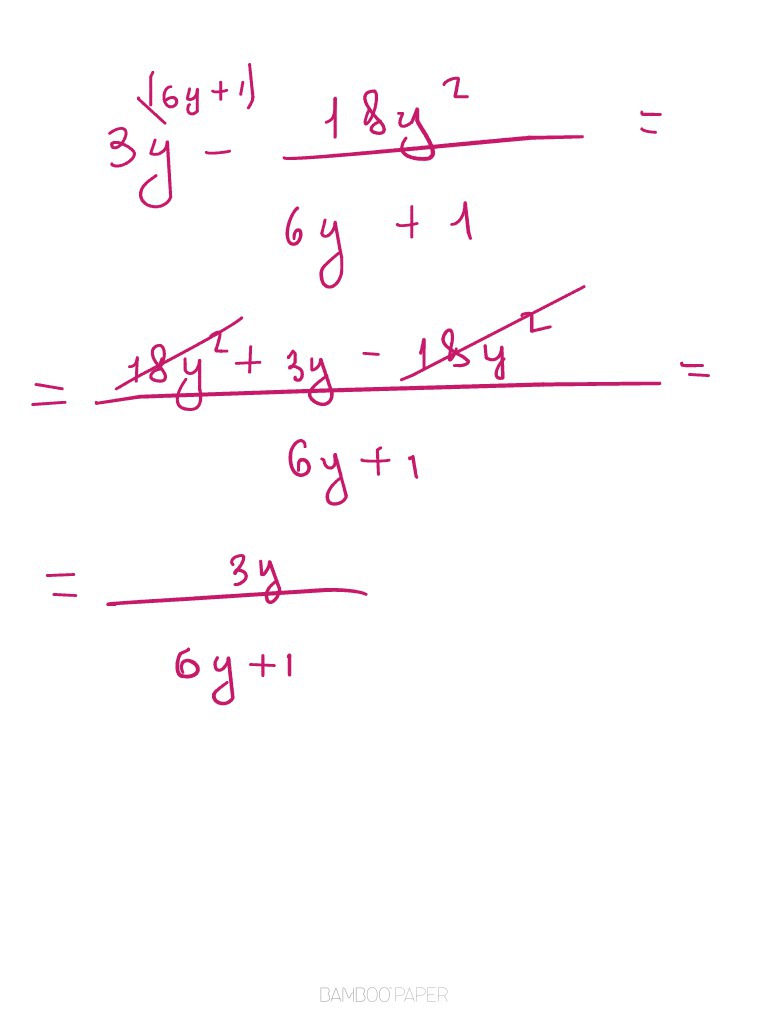 (6y+1)
3y - 18y² =
6y + 1
= 18y² + 3y - 18y² =
6y + 1
= 3y
6y + 1
BAMBOO PAPER